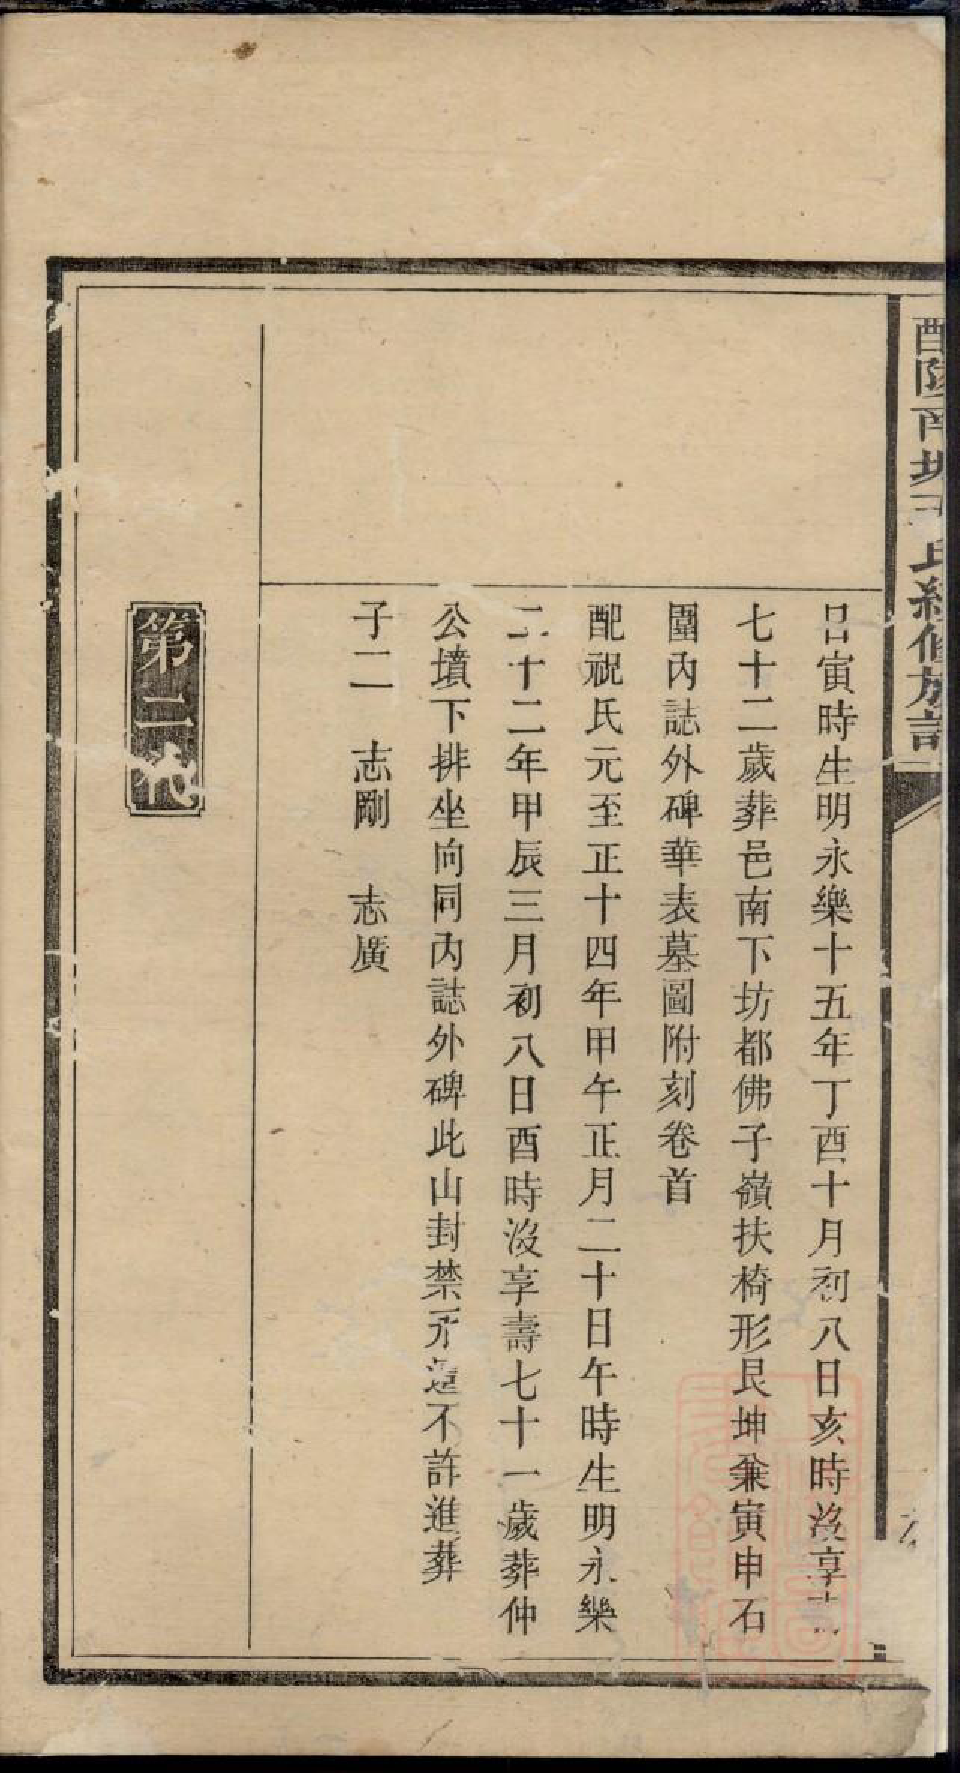 醴陵南城王氏續修族譜
日寅時生明永樂十五年丁酉十月初八日亥時沒享壽
七十二歲葬邑南下坊都佛子嶺扶椅形艮坤兼寅申石
圍內誌外碑華表墓圖附刻卷首
配祝氏元至正十四年甲午正月二十日午時生明永樂
二十二年甲辰三月初八日酉時沒享壽七十一歲葬仲
公墳下排坐向同內誌外碑此山封禁永遠不許進葬
子二　志剛　志廣
第二代